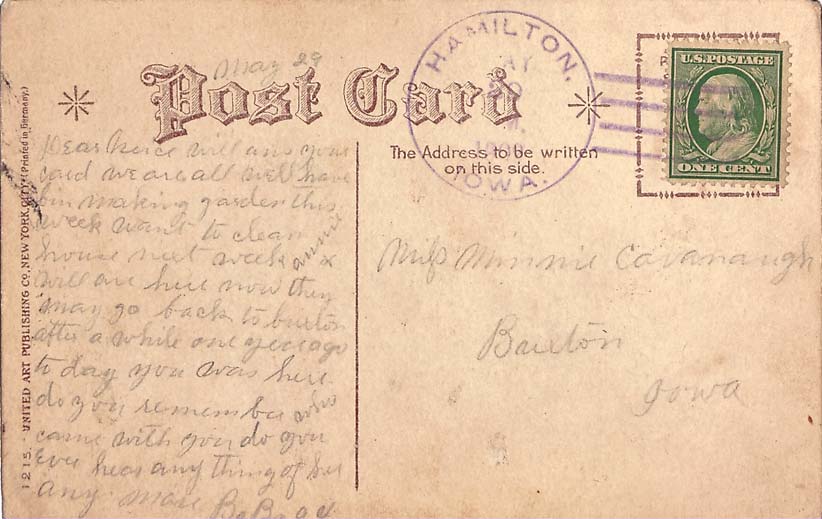 May 29
Post Card
HAMILTON,
IOWA.
U.S. POSTAGE
ONE CENT
The Address to be written
on this side.
1215. UNITED ART PUBLISHING CO. NEW YORK CITY. (Printed in Germany.)
Dear Neice will ans your
card we are all well have
bin making garden this
week want to clean
house next week annie x
will are here now they
may go back to buxton
after a while one year ago
to day you was here
do you remember who
came with you do you
ever hear any thing of her
any more
Miss Minnie Cavanaugh
Buxton
Iowa